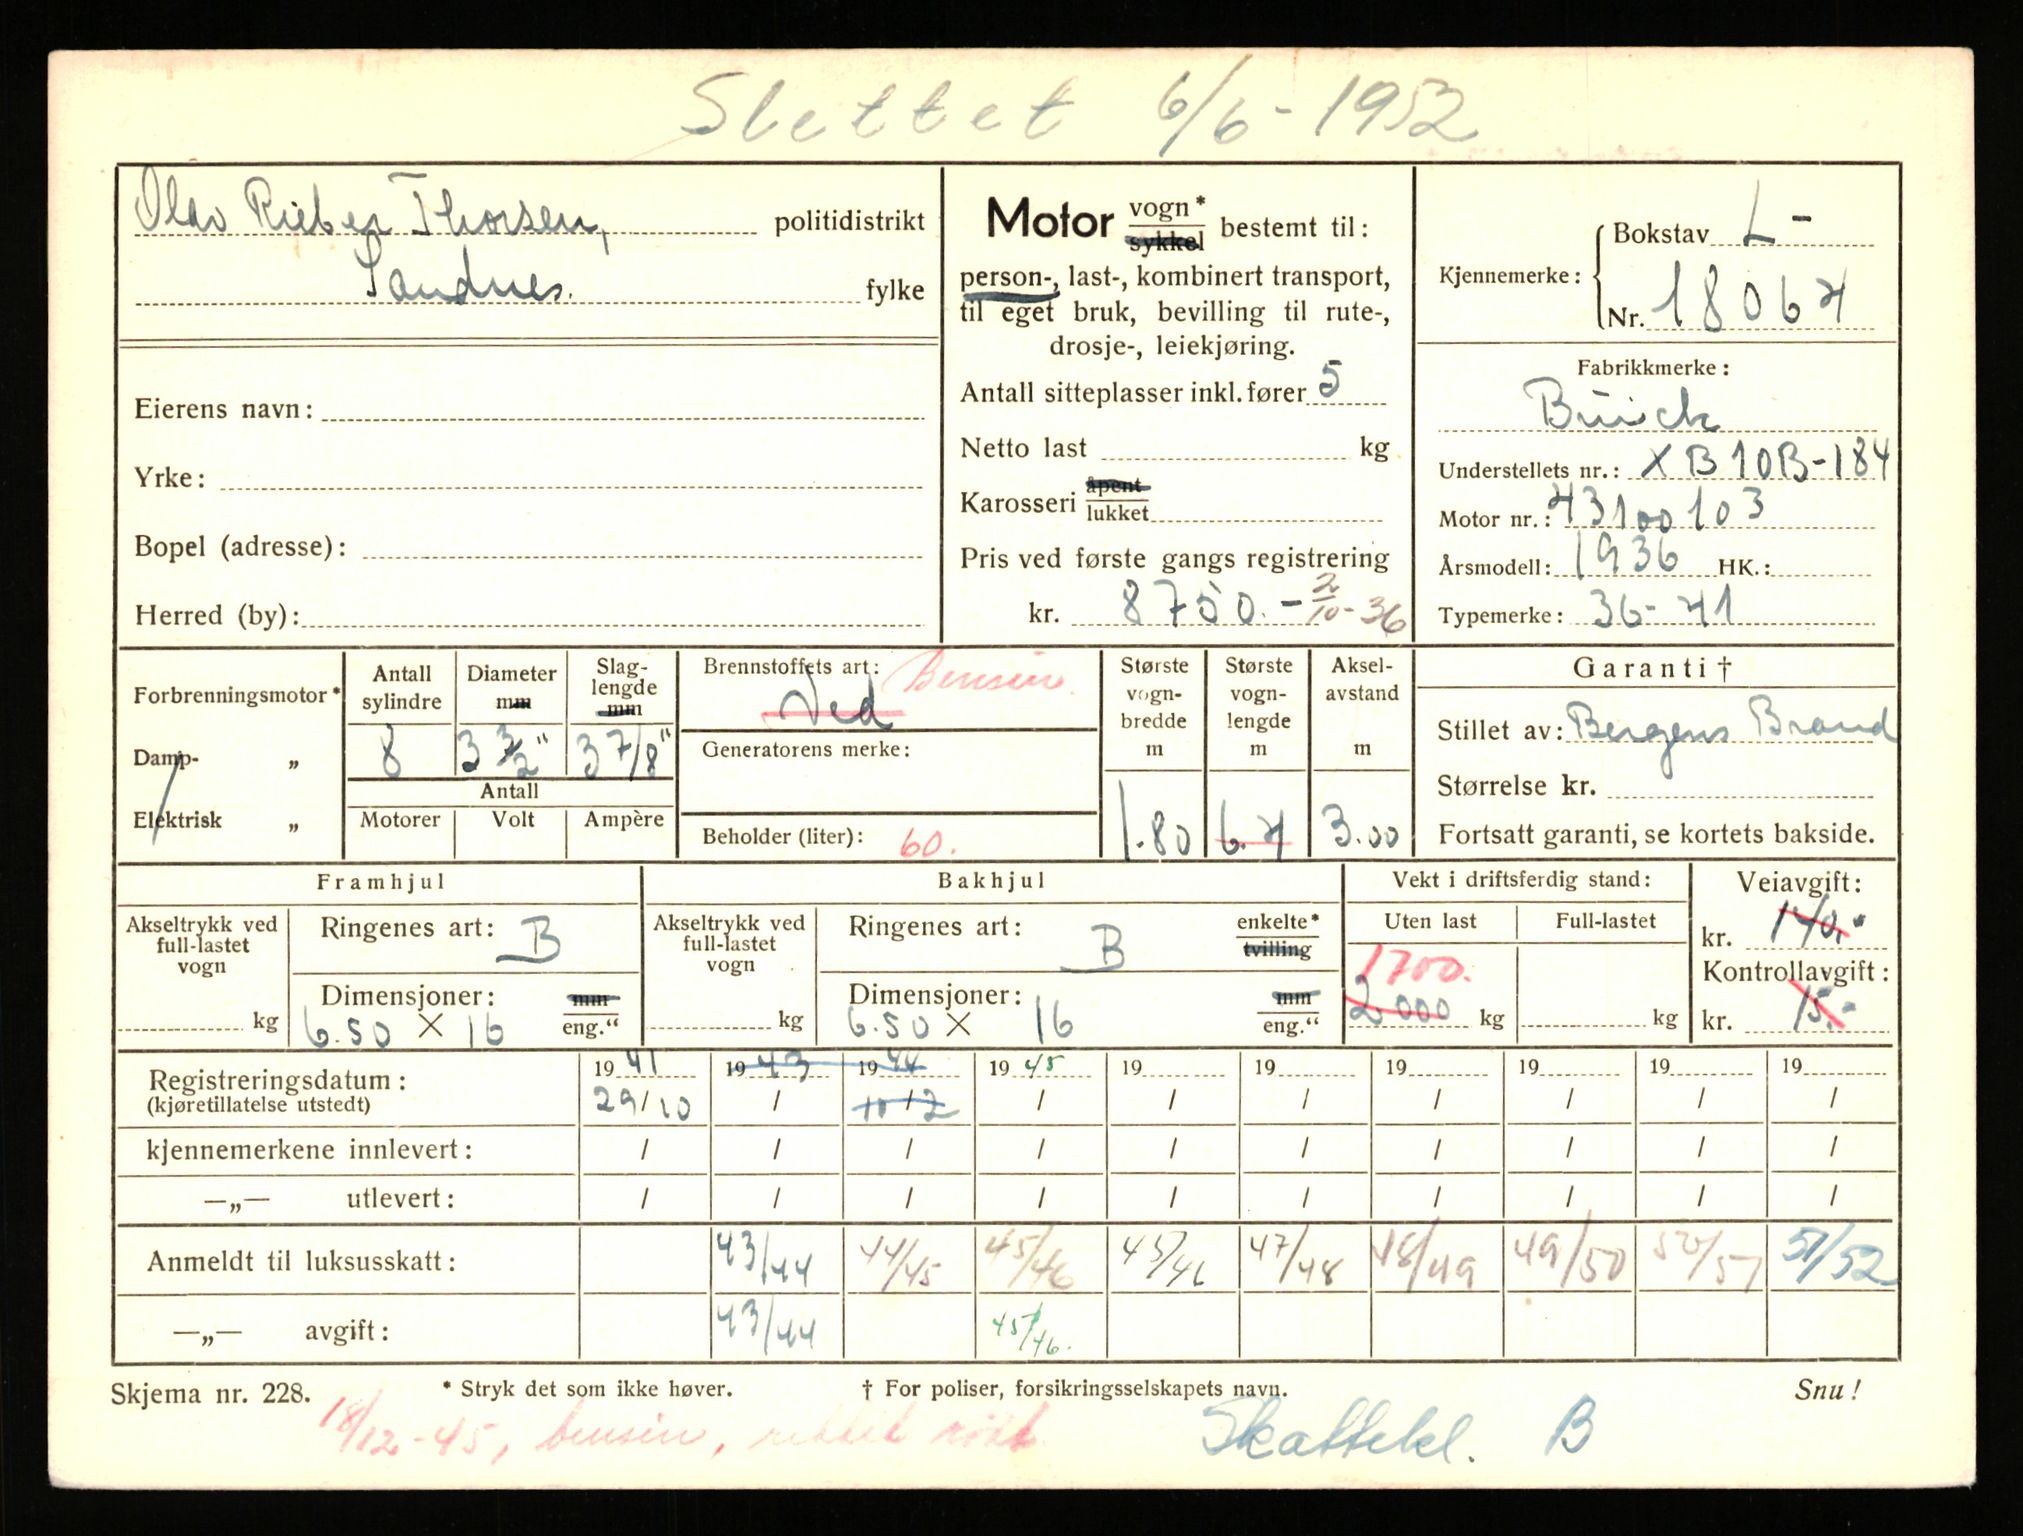 Slettet 6/6-1952
Olav Rieber Thorsen, politidistrikt
Sandnes. fylke
Eierens navn:
Yrke:
Bopel (adresse):
Herred (by):
Motor vogn* sykkel bestemt til:
person-, last-, kombinert transport,
til eget bruk, bevilling til rute-,
drosje-, leiekjøring.
Antall sitteplasser inkl. fører 5
Netto last kg
Karosseri åpent lukket
Pris ved første gangs registrering
kr. 8750.- 2/10-36
Kjennemerke: Bokstav L-
Nr. 18064
Fabrikkmerke:
Buick
Understellets nr.: XB10B-184
Motor nr.: 43100103
Årsmodell: 1936 HK.:
Typemerke: 36-41
Forbrenningsmotor*
Damp- „
Elektrisk „
Antall sylindre
8
Diameter mm
3 3/2"
Slag-lengde mm
3 7/8"
Antall
Motorer Volt Ampère
Brennstoffets art: Bensin
Ved
Generatorens merke:
Beholder (liter): 60.
Største vogn-bredde m
1.80
Største vogn-lengde m
6.4
Aksel-avstand m
3.00
Garanti †
Stillet av: Bergens Brand
Størrelse kr.
Fortsatt garanti, se kortets bakside.
Framhjul
Akseltrykk ved full-lastet vogn
kg
Ringenes art: B
Dimensjoner: mm
6.50 X 16 eng."
Bakhjul
Akseltrykk ved full-lastet vogn
kg
Ringenes art: B enkelte* tvilling
Dimensjoner: mm
6.50 X 16 eng."
Vekt i driftsferdig stand:
Uten last Full-lastet
1700.
2000 kg kg
Veiavgift:
kr. 140.-
Kontrollavgift:
kr. 15.-
Registreringsdatum: 1941 1943 1944 1945 19 19 19 19 19 19
(kjøretillatelse utstedt) 29/10 / 10/2 / / / / / / /
kjennemerkene innlevert: / / / / / / / / / /
—„— utlevert: / / / / / / / / / /
Anmeldt til luksusskatt: 43/44 44/45 45/46 45/46 47/48 48/49 49/50 50/51 51/52
—„— avgift: 43/44 45/46.
Skjema nr. 228. * Stryk det som ikke høver. † For poliser, forsikringsselskapets navn. Snu!
18/12-45, bensin, rettet rødt
Skattekl. B